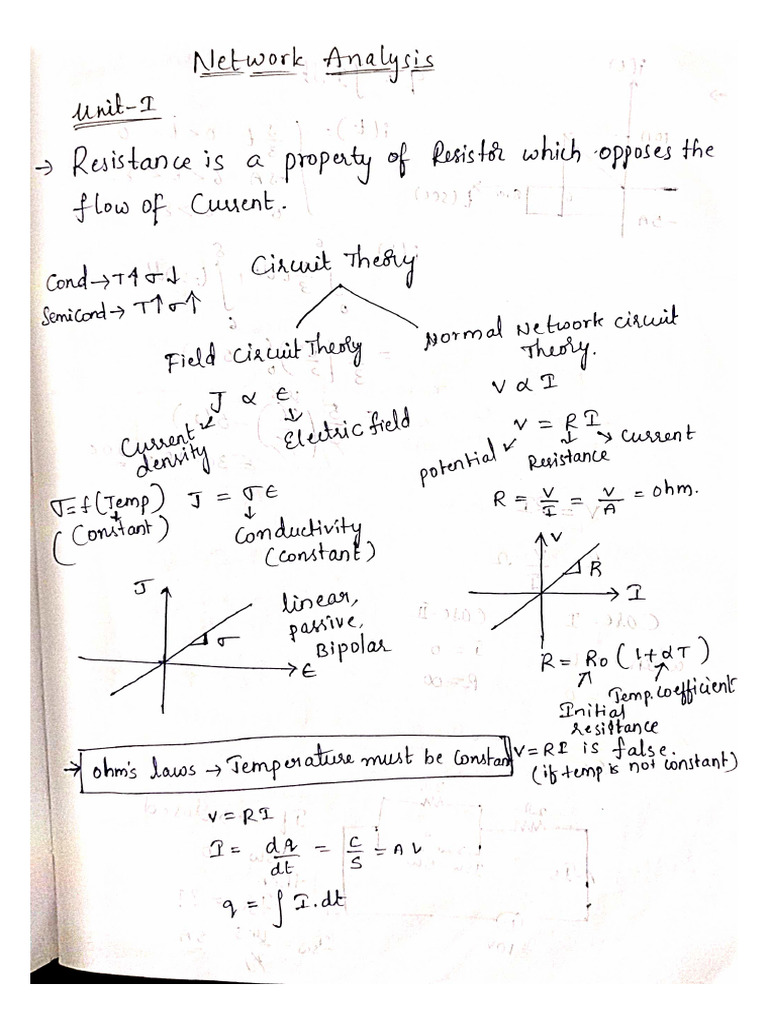 Network Analysis
Unit-I
→ Resistance is a property of Resistor which opposes the
flow of Current.
Cond → T↑ σ↓
Semicond → T↑ σ↑
Circuit Theory
Field Circuit Theory
J α ε
Current density
Electric field
σ = f(Temp)
(Constant)
J = σε
Conductivity
(constant)
J
σ
ε
linear,
passive,
Bipolar
Normal Network circuit
Theory.
V α I
V = RI
potential
Resistance
Current
R = V/I = V/A = ohm.
V
R
I
R = R0 (1+αT)
Temp. coefficient
Initial
resistance
→ ohm's laws → Temperature must be Constant
V=RI is false.
(if temp is not constant)
V = RI
I = dq/dt = C/S = A
q = ∫ I.dt